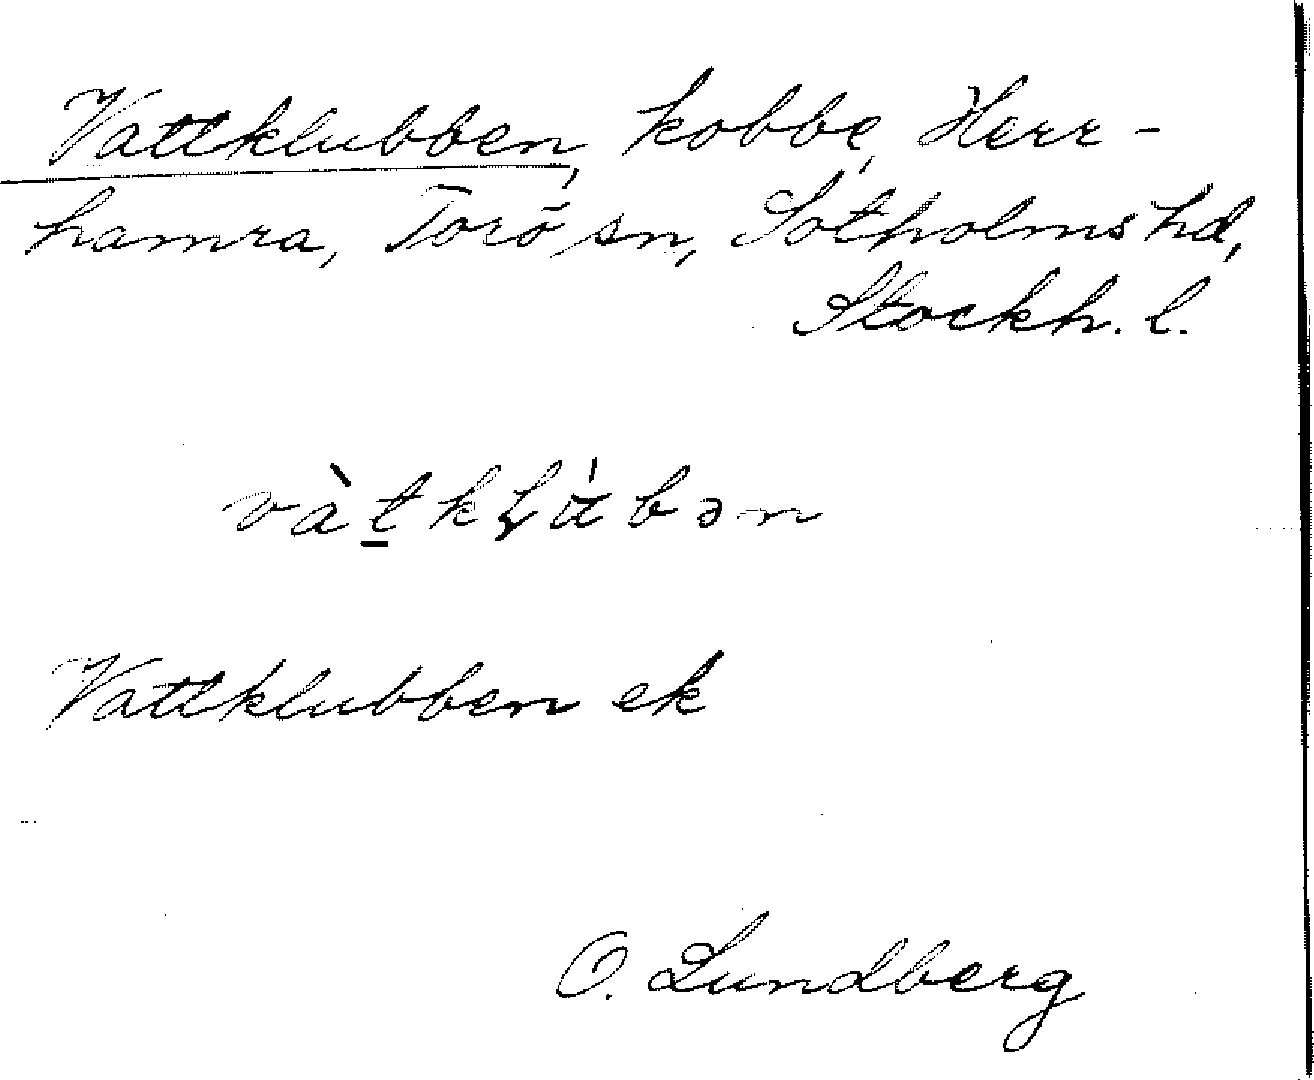 Vattklubben, kobbe, Herr-
hamra, Torö sn, Sotholms hd,
Stockh. l.
vàt̠kḷu̍bən
Vattklubben ek
O. Lundberg